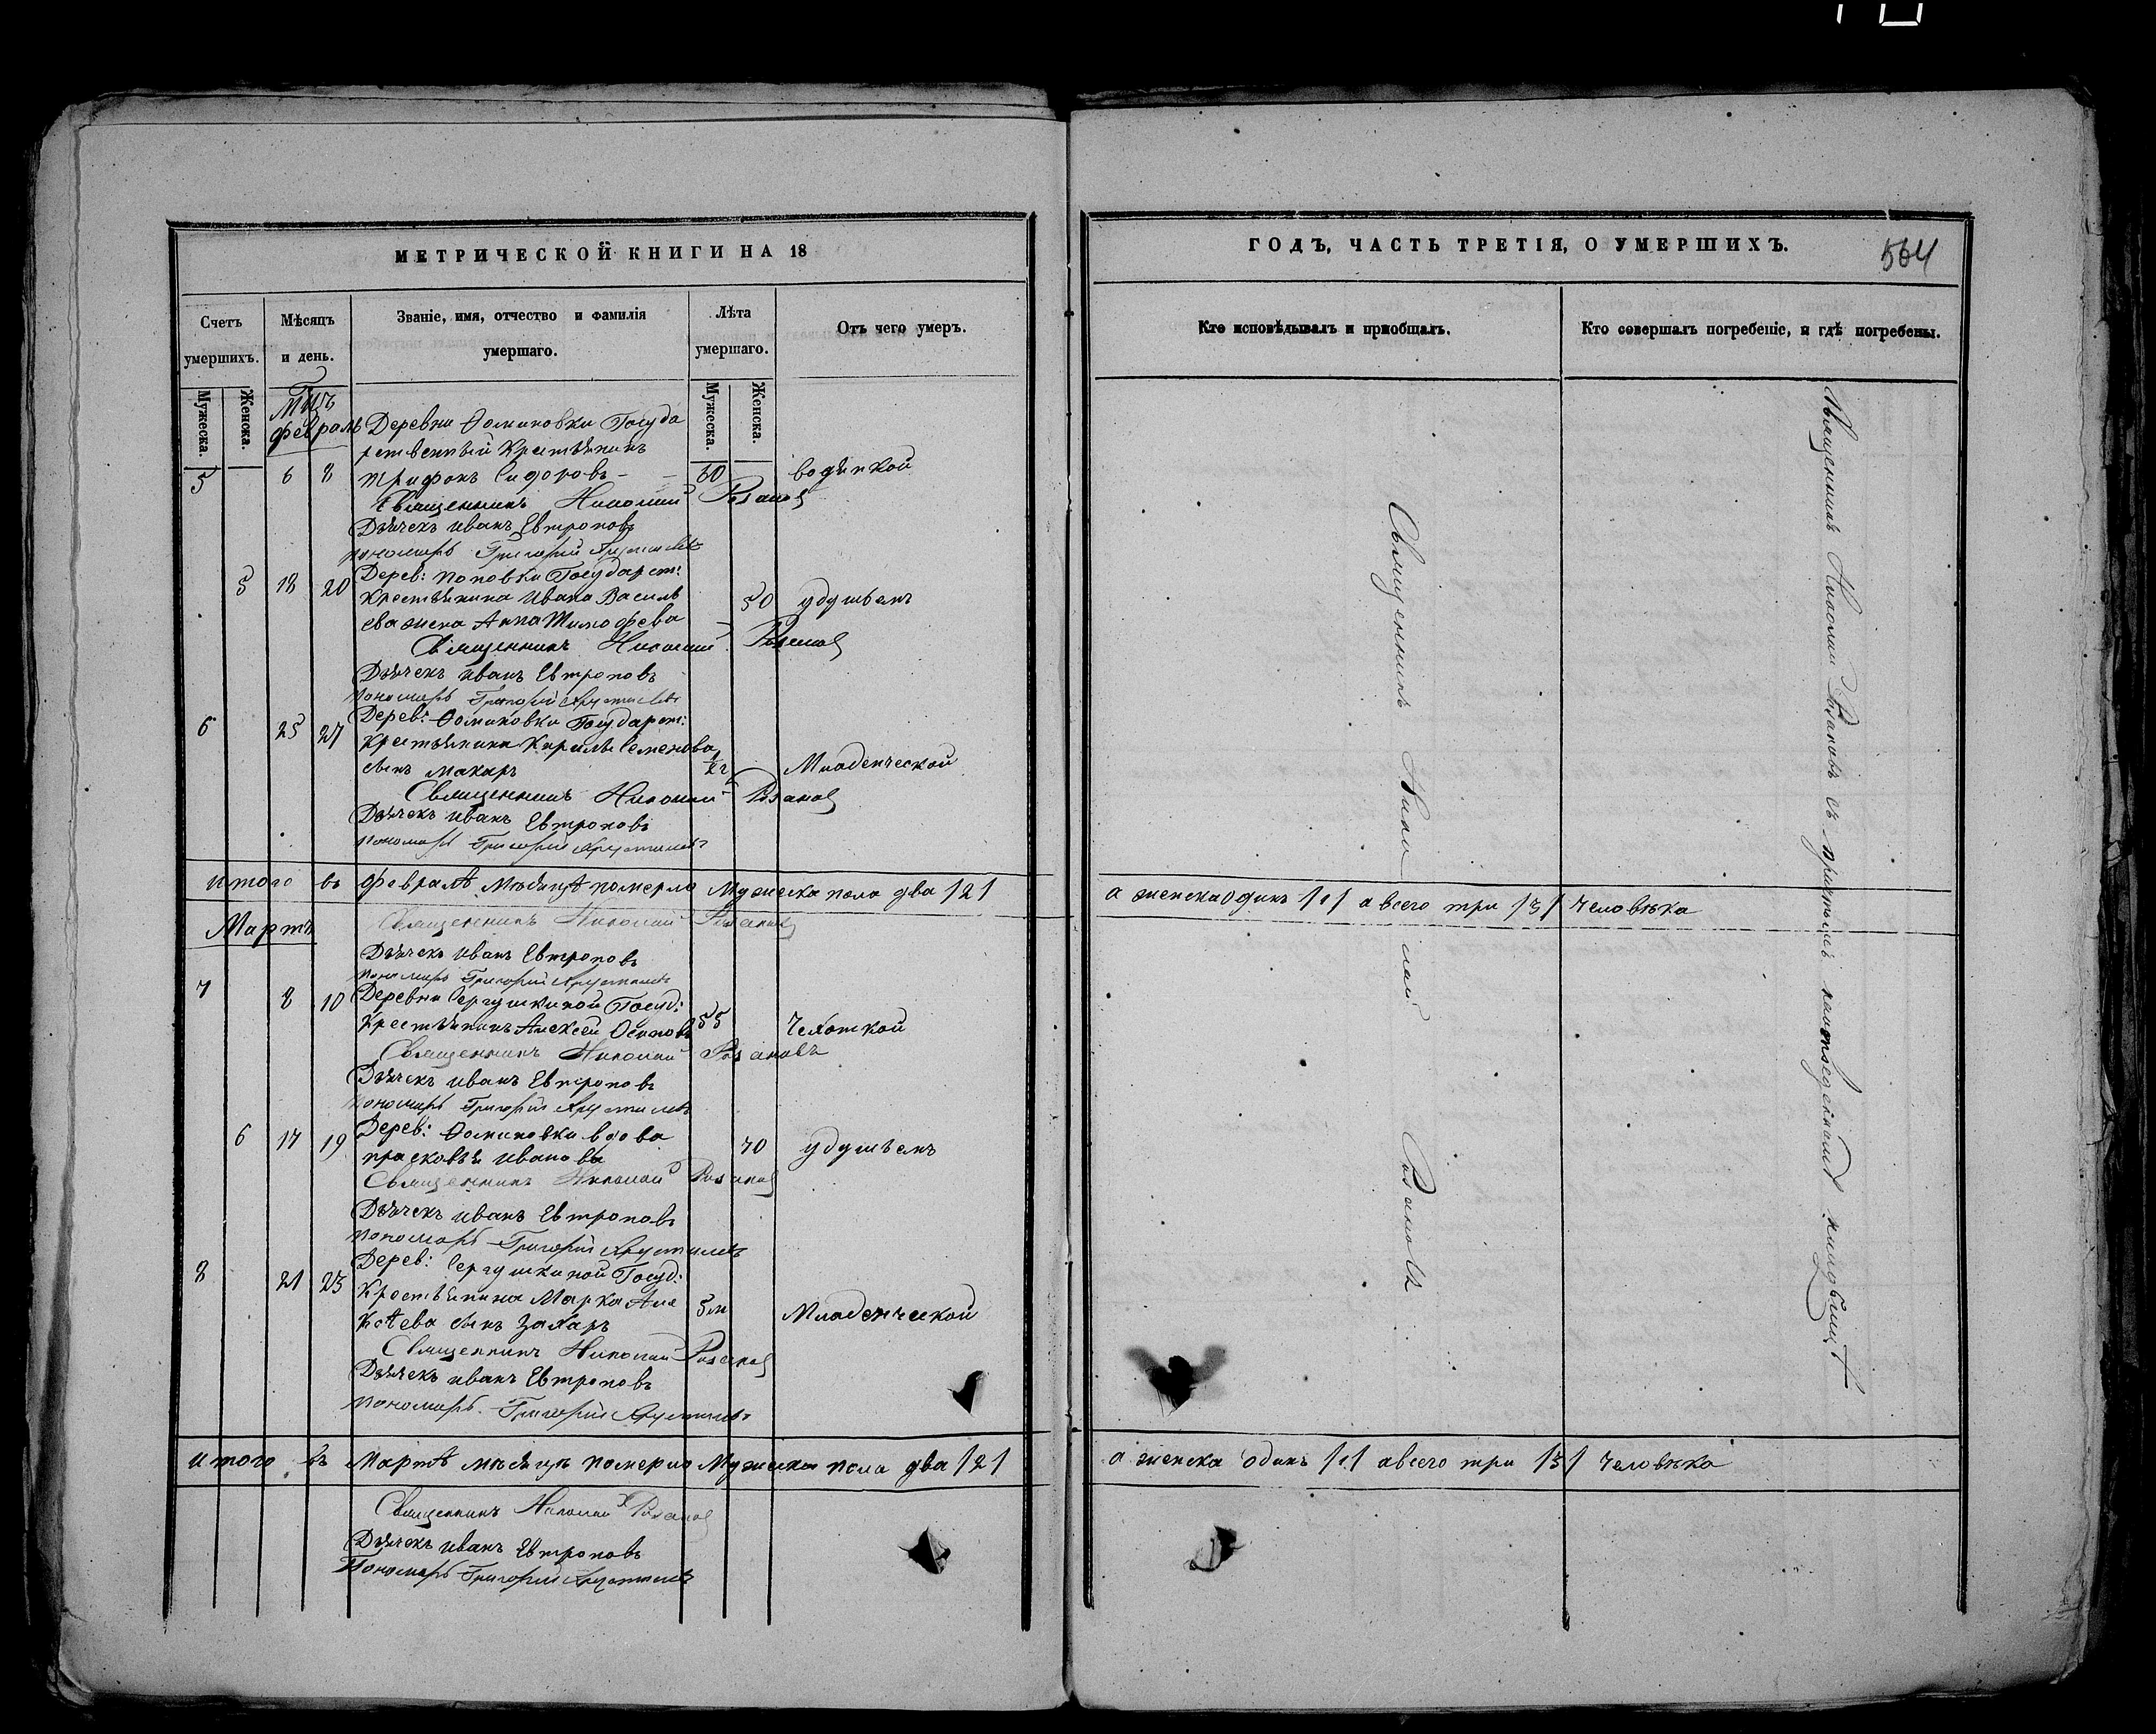 МЕТРИЧЕСКОЙ КНИГИ НА 18
Счетъ умершихъ.
Мѣсяцъ и день.
Званіе, имя, отчество и фамилія умершаго.
Лѣта умершаго.
Отъ чего умеръ.
Мужеска. Женска.
Мужеска. Женска.
Мцъ
февраль
Деревни Ѳоминовки Госуда
рственный Крестьянинъ
5 6 8 Трифонъ Сидоровъ 60 водянкой
Священникъ Николай Розановъ
Дьячекъ Иванъ Евтроповъ
пономарь Григорій
Дерев: Поповки Государст:
5 18 20 Крестьянина Ивана Василь 50 удушьемъ
ева жена Анна Тимофева
Священникъ Николай Розановъ
Дьячекъ Иванъ Евтроповъ
пономарь Григорій
Дерев: Ѳоминовки Государст:
6 25 27 Крестьянина Кирилы Семенова
сынъ Макаръ Младенческой
Священникъ Николай Розановъ
Дьячекъ Иванъ Евтроповъ
пономарь Григорій
итого въ февралѣ мѣсяцѣ померло мужеска пола два /2/
Мартъ
Священникъ Николай Розановъ
Дьячекъ Иванъ Евтроповъ
пономарь Григорій
7 8 10 Деревни Сергушкиной Госуд:
Крестьянинъ Алексей Осиповъ 55 Чехоткой
Священникъ Николай Розановъ
Дьячекъ Иванъ Евтроповъ
пономарь Григорій
6 17 19 Дерев: Ѳоминовки вдова
Прасковья Иванова 70 удушьемъ
Священникъ Николай Розановъ
Дьячекъ Иванъ Евтроповъ
пономарь Григорій
8 21 23 Дерев: Сергушкиной Госуд:
Крестьянина Марка Але 5м Младенческой
ксѣева сынъ Захаръ
Священникъ Николай Розановъ
Дьячекъ Иванъ Евтроповъ
пономарь Григорій
итого въ Мартѣ мѣсяцѣ померло Мужеска пола два /2/
Священникъ Николай Розановъ
Дьячекъ Иванъ Евтроповъ
Пономарь Григорій
ГОДЪ, ЧАСТЬ ТРЕТІЯ, О УМЕРШИХЪ.
564
Кто исповѣдывалъ и пріобщалъ.
Кто совершалъ погребеніе, и гдѣ погребены.
Священникъ Николай Розановъ
Священникъ Николай Розановъ съ причтомъ на отведенномъ кладбищѣ
а женска одинъ /1/ а всего три /3/ человѣка
а женска одинъ /1/ а всего три /3/ человѣка